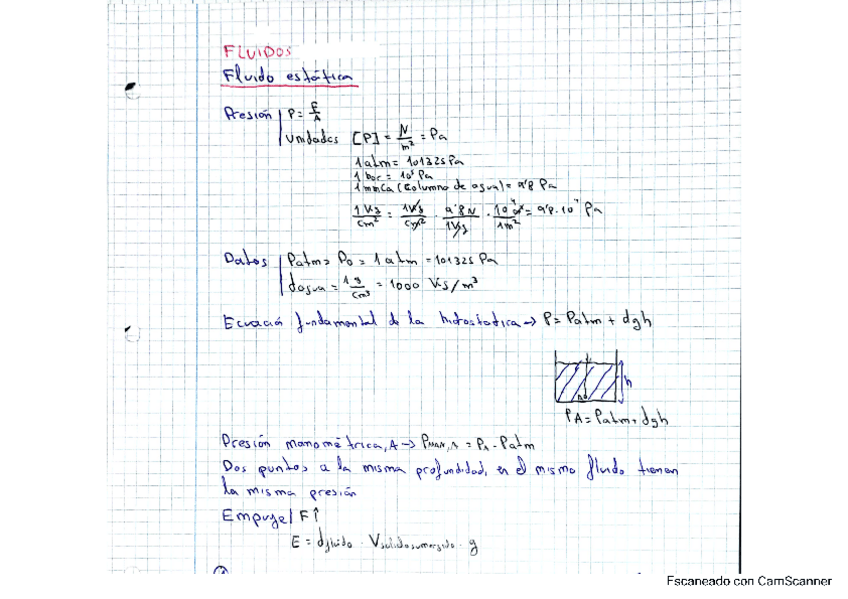 FLUIDOS
Fluido estática
Presión P = F/A
Unidades [P] = N/m² = Pa
1 atm = 101325 Pa
1 bar = 10⁵ Pa
1 mmca (Columna de agua) = 9'8 Pa
1 Kg/cm² = 1 Kg/cm² · 9'8 N/1 Kg · 10⁴ cm²/1 m² = 9'8 · 10⁴ Pa
Datos Patm = P₀ = 1 atm = 101325 Pa
dagua = 1 g/cm³ = 1000 Kg/m³
Ecuación fundamental de la hidrostatica → P = Patm + dgh
h
A
PA = Patm + dgh
Presión manométrica, A → PMAN, A = PA - Patm
Dos puntos a la misma profundidad, en el mismo fluido tienen
la misma presión
Empuje F↑
E = dfluido · Vsolidosumergido · g
Escaneado con CamScanner